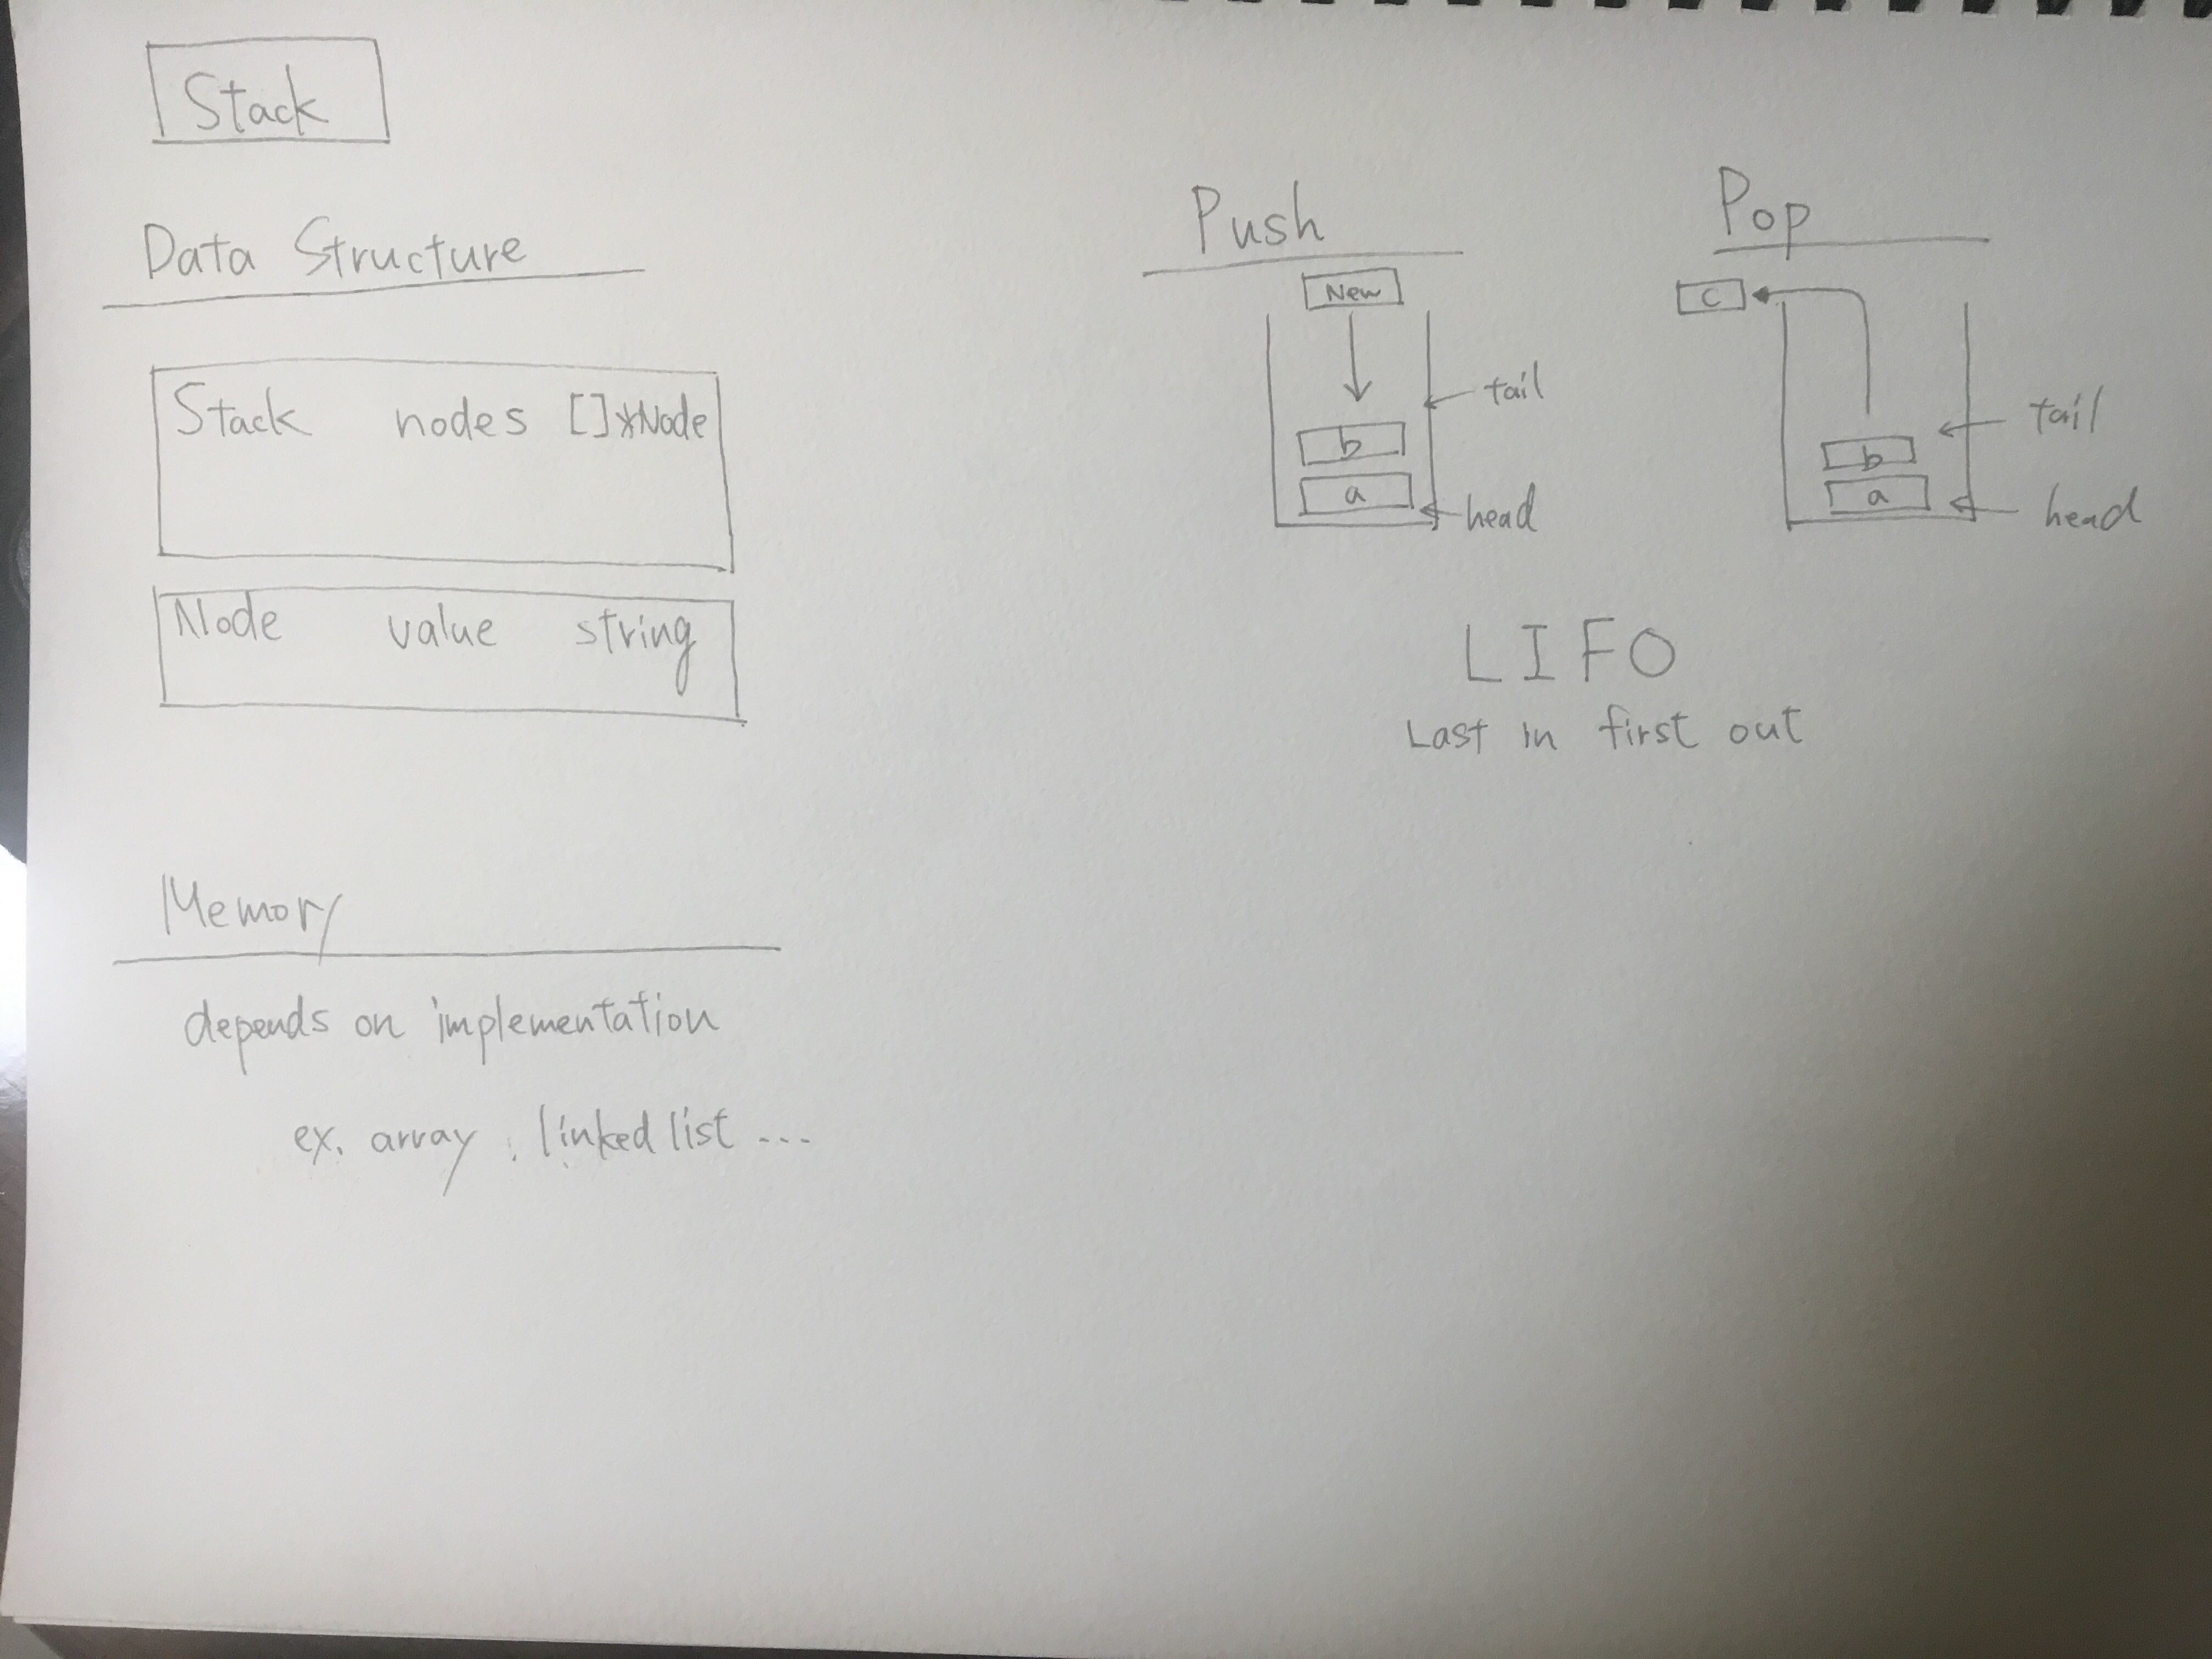 Stack
Data Structure
Stack nodes []*Node
Node value string
Memory
depends on implementation
ex. array, linked list ...
Push
New
tail
b
a
head
Pop
c
tail
b
a
head
LIFO
Last in first out